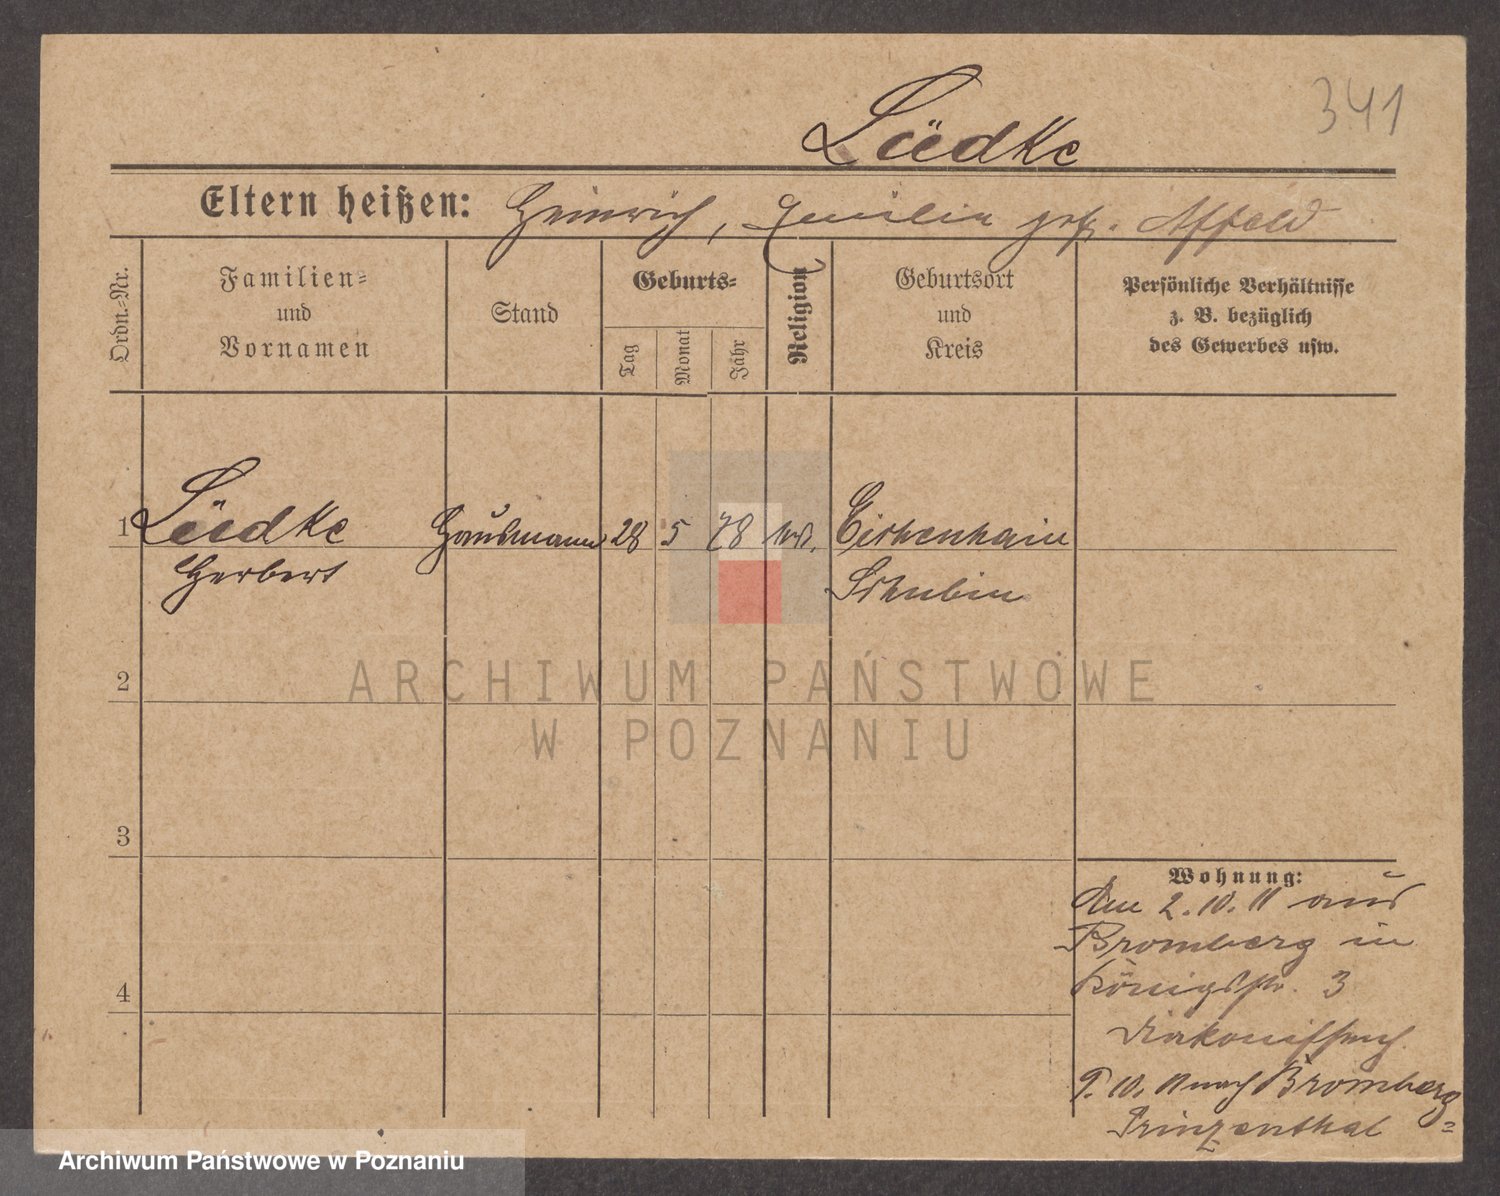 341
Lüdke
Eltern heißen: Heinrich, Emilie geb. Affeld
Ordn.-Nr.
Familien-
und
Vornamen
Stand
Geburts-
Tag
Monat
Jahr
Religion
Geburtsort
und
Kreis
Persönliche Verhältnisse
z. B. bezüglich
des Gewerbes usw.
1 Lüdke Hausmann 28 5 78 Eichenhain
Herbert Schubin
2
3
4
Wohnung:
Am 2.10.11 aus
Bromberg in
Königstr. 3
Diakonissenh.
9.10.11 nach Bromberg=
Prinzenthal
ARCHIWUM PAŃSTWOWE
W POZNANIU
Archiwum Państwowe w Poznaniu